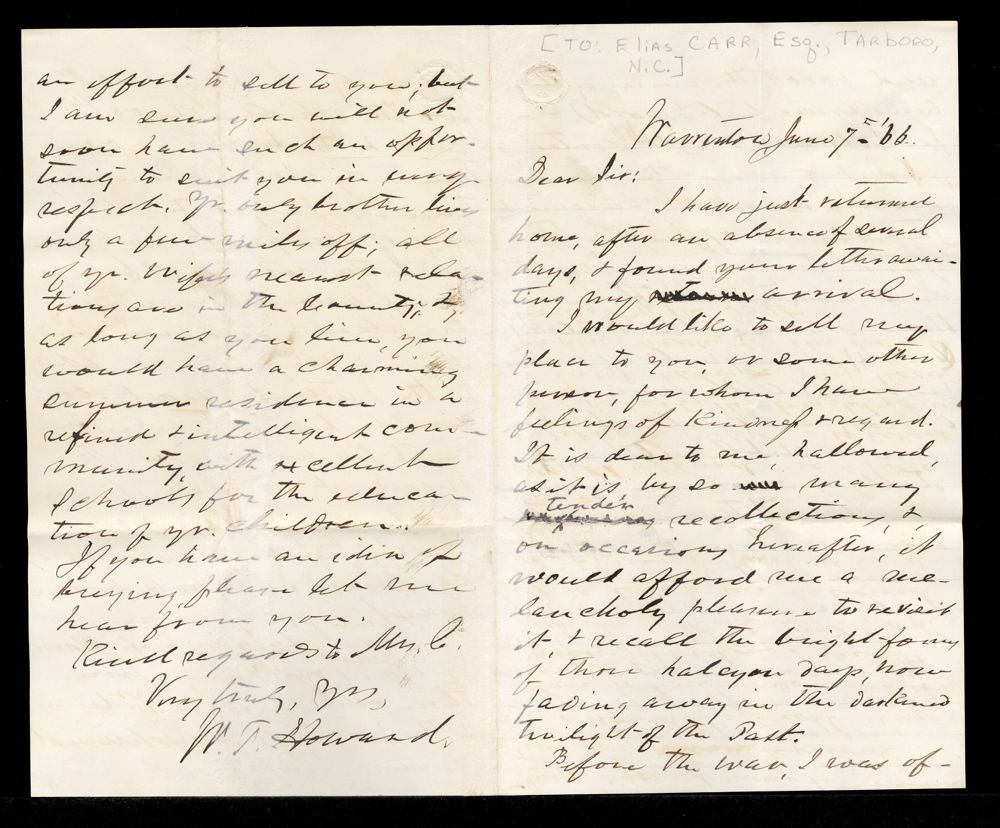 [TO: Elias CARR, Esq., TARBORO,
N.C.]
Warrenton June 7th '66.
Dear Sir:
I have just returned
home, after an absence of several
days, & found your letter awai-
ting my arrival.
I would like to sell my
place to you, or some other
person, for whom I have
feelings of kindness & regard.
It is dear to me, hallowed,
as it is, by so many
tender recollections, &,
on occasions hereafter, it
would afford me a me-
lancholy pleasure to revisit
it, & recall the bright forms
of those halcyon days, now
fading away in the darkened
twilight of the Past.
Before the war, I was of-
an effort to sell to you; but
I am sure you will not
soon have such an oppor-
tunity to suit you in every
respect. Yr. only brother lives
only a few miles off; all
of yr. Wife's nearest rela-
tions are in the County; &,
as long as you live, you
would have a charming
summer residence in a
refined & intelligent com-
munity, with excellent
schools for the educa-
tion of yr. children.
If you have an idea of
buying, please let me
hear from you.
Kind regards to Mrs. C.
Very truly, Yrs,
W. T. Howard.